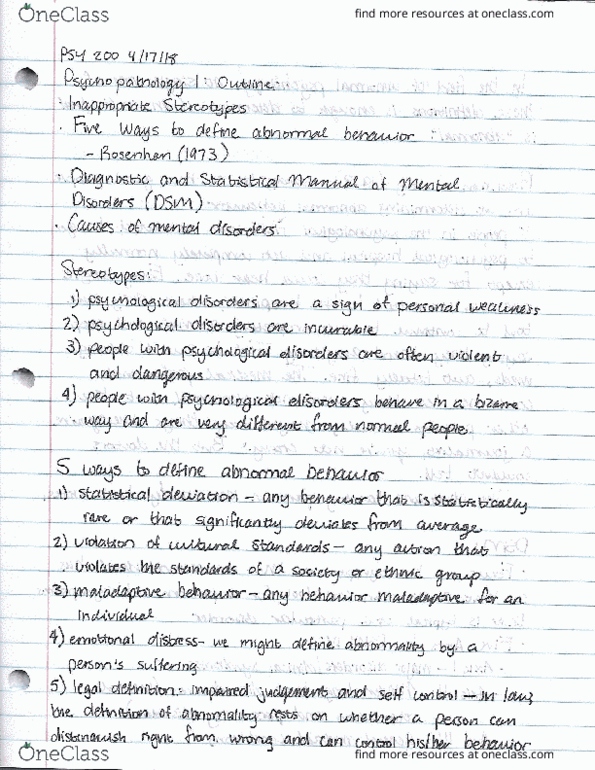 OneClass
find more resources at oneclass.com
PSY 200 4/17/18
Psychopathology 1: Outline:
· Inappropriate Stereotypes
· Five Ways to define abnormal behavior
- Rosenhan (1973)
· Diagnostic and Statistical Manual of Mental
Disorders (DSM)
· Causes of mental disorders
Stereotypes:
1) psychological disorders are a sign of personal weakness
2) psychological disorders are incurable
3) people with psychological disorders are often violent
and dangerous
4) people with psychological disorders behave in a bizarre
way and are very different from normal people
5 ways to define abnormal behavior
1) statistical deviation - any behavior that is statistically
rare or that significantly deviates from average
2) violation of cultural standards - any action that
violates the standards of a society or ethnic group
3) maladaptive behavior - any behavior maladaptive for an
individual
4) emotional distress - we might define abnormality by a
person's suffering
5) legal definition: impaired judgement and self control - in law,
the definition of abnormality rests on whether a person can
distinguish right from wrong and can control his/her behavior
OneClass
find more resources at oneclass.com